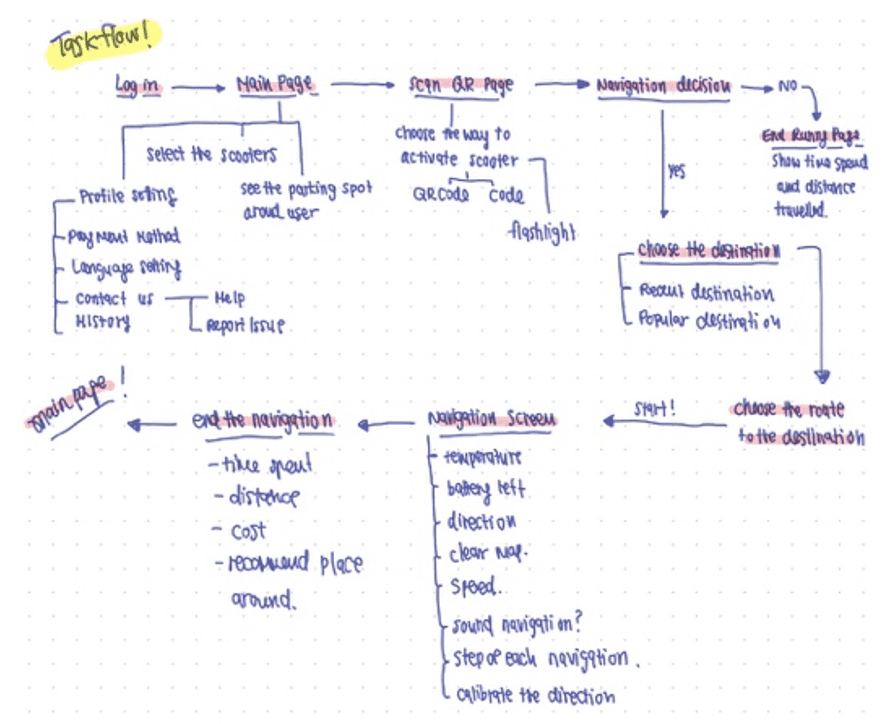 Task flow!
Log in
Main Page
Scan QR Page
Navigation decision
NO
select the scooters
Profile setting
Payment Method
Language setting
Contact us
History
Help
Report Issue
see the parking spot
aroud user
choose the way to
activate scooter
QR Code
code
flashlight
yes
End Runny Page
Show time spend
and distance
travelled.
choose the destination
Recent destination
Popular destination
choose the route
to the destination
START!
Navigation Screen
temperature
battery left
direction
clear map.
Speed.
sound navigation?
step of each navigation.
calibrate the direction
End the navigation
- time spent
- distance
- cost
- recommend place
around.
main page!